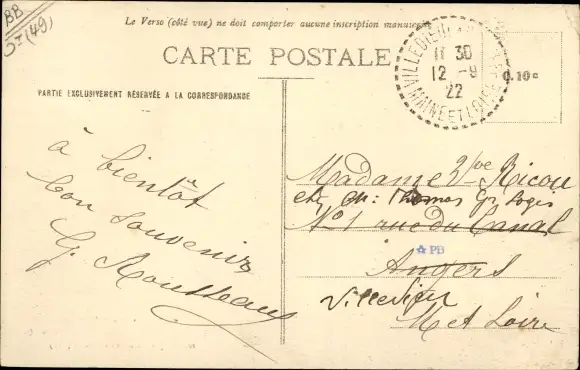 BB
Le Verso (côté vue) ne doit comporter aucune inscription manuscrite
CARTE POSTALE
PARTIE EXCLUSIVEMENT RÉSERVÉE A LA CORRESPONDANCE
VILLEDIEU
11 30
12 - 9
22
MAINE ET LOIRE
0.10 c
à bientôt
bon souvenir
G. Rousseau
Madame Vve Ricou
chez M: Thomas
N° 1 rue du Canal
PB
Angers
Villedieu
M et Loire